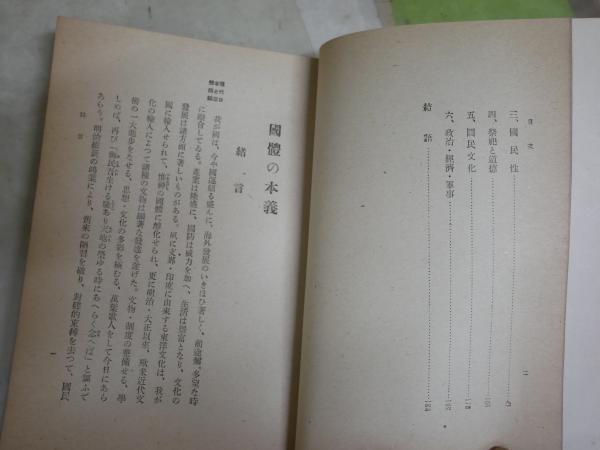 目次
三、國民性
四、祭祀と道德
五、國民文化
六、政治・經濟・軍事
結語
二
現代日本と思想
國體の本義
緒言
我が國は、今や國運頗る盛んに、海外發展のいきほひ著しく、前途彌々多望な時
に際會してゐる。產業は隆盛に、國防は威力を加へ、生活は豐富となり、文化の
發展は諸方面に著しいものがある。夙に支那・印度に由來する東洋文化は、我が
國に輸入せられて、惟神の國體に醇化せられ、更に明治・大正以來、歐米近代文
化の輸入によつて諸種の文物は顯著な發達を遂げた。文物・制度の整備せる、學
術の一大進步をなせる、思想・文化の多彩を極むる、萬葉歌人をして今日にあら
しめば、再び「御民吾生ける驗あり天地の榮ゆる時にあへらく念へば」と謳ふで
あらう。明治維新の鴻業により、舊來の陋習を破り、封建的束縛を去つて、國民
緒言
一